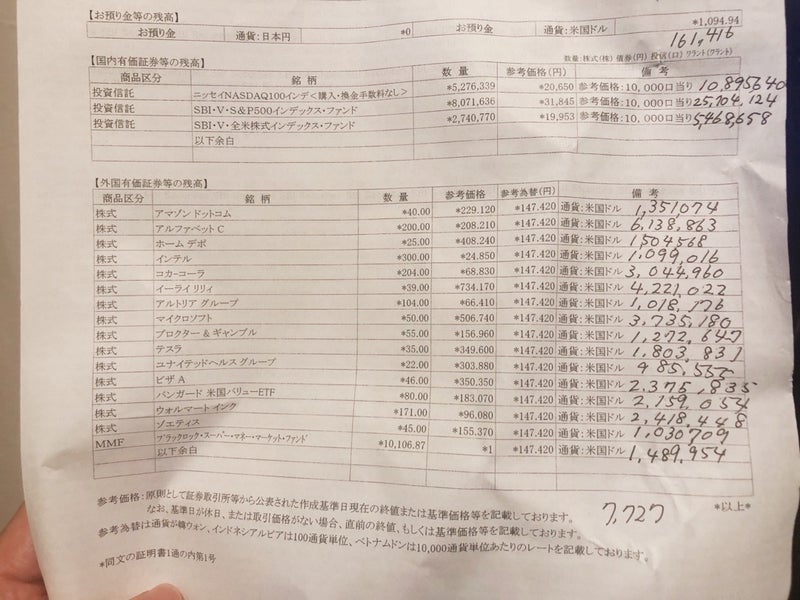 【お預り金等の残高】
お預り金 通貨:日本円 *0 お預り金 通貨:米国ドル *1,094.94
161,416
【国内有価証券等の残高】 数量:株式(株) 債券(円) 投信(口) ワラント(ワラント)
商品区分 銘柄 数量 参考価格(円) 備考
投資信託 ニッセイNASDAQ100インデ<購入・換金手数料なし> *5,276,339 *20,650 参考価格:10,000口当り 10,895640
投資信託 SBI・V・S&P500インデックス・ファンド *8,071,636 *31,845 参考価格:10,000口当り 25,704,124
投資信託 SBI・V・全米株式インデックス・ファンド *2,740,770 *19,953 参考価格:10,000口当り 5,468,658
以下余白
【外国有価証券等の残高】
商品区分 銘柄 数量 参考価格 参考為替(円) 備考
株式 アマゾン ドットコム *40.00 *229.120 *147.420 通貨:米国ドル 1,351074
株式 アルファベット C *200.00 *208.210 *147.420 通貨:米国ドル 6,138,863
株式 ホーム デポ *25.00 *408.240 *147.420 通貨:米国ドル 1,504568
株式 インテル *300.00 *24.850 *147.420 通貨:米国ドル 1,099,016
株式 コカ・コーラ *204.00 *68.830 *147.420 通貨:米国ドル 3,044,960
株式 イーライ リリィ *39.00 *734.170 *147.420 通貨:米国ドル 4,221,022
株式 アルトリア グループ *104.00 *66.410 *147.420 通貨:米国ドル 1,018,176
株式 マイクロソフト *50.00 *506.740 *147.420 通貨:米国ドル 3,735,180
株式 プロクター & ギャンブル *55.00 *156.960 *147.420 通貨:米国ドル 1,272,647
株式 テスラ *35.00 *349.600 *147.420 通貨:米国ドル 1,803,831
株式 ユナイテッドヘルス グループ *22.00 *303.880 *147.420 通貨:米国ドル
株式 ビザ A *46.00 *350.350 *147.420 通貨:米国ドル 2,375,835
株式 バンガード 米国バリューETF *80.00 *183.070 *147.420 通貨:米国ドル 2,159,054
株式 ウォルマート インク *171.00 *96.080 *147.420 通貨:米国ドル 2,418,448
株式 ゾエティス *45.00 *155.370 *147.420 通貨:米国ドル 1,030709
MMF ブラックロック・スーパー・マネー・マーケット・ファンド *10,106.87 *1 *147.420 通貨:米国ドル 1,489,954
以下余白
参考価格:原則として証券取引所等から公表された作成基準日現在の終値または基準価格等を記載しております。
なお、基準日が休日、または取引価格がない場合、直前の終値、もしくは基準価格等を記載しております。
参考為替は通貨が韓ウォン、インドネシアルピアは100通貨単位、ベトナムドンは10,000通貨単位あたりのレートを記載しております。
7,727
*以上*
*同文の証明書1通の内第1号